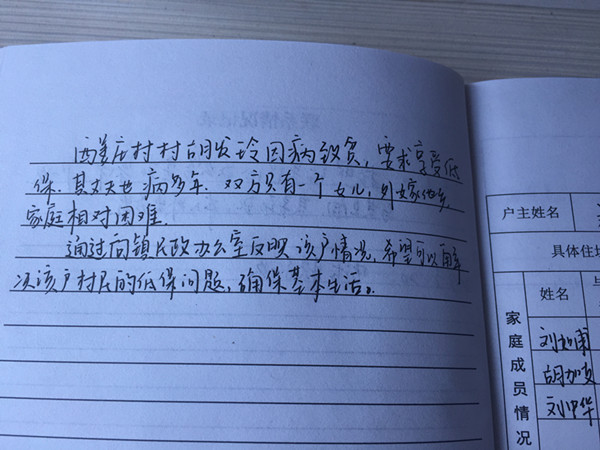 西姜庄村村胡发玲因病致贫，要求享受低
保。其丈夫也病多年。双方只有一个女儿，外嫁他乡，
家庭相对困难。
通过向镇民政办公室反映该户情况，希望可以解
决该户村民的低保问题，确保基本生活。
户主姓名
具体住址
姓名 与
家庭成员情况
刘
胡加友
刘中华